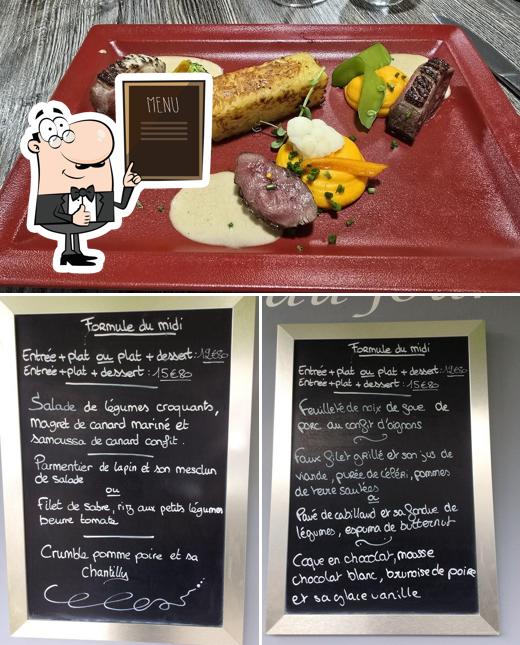 MENU
au jour
Formule du midi
Entrée + plat ou plat + dessert : 12€80
Entrée + plat + dessert : 15€80
Salade de légumes croquants,
magret de canard mariné et
samoussa de canard confit.
Parmentier de lapin et son mesclun
de salade
ou
Filet de sabre, riz aux petits légumes
beurre tomate
Crumble pomme poire et sa
Chantilly
Formule du midi
Entrée + plat ou plat + dessert : 12€80
Entrée + plat + dessert : 15€80
Feuilleté de noix de joue de
porc au confit d'oignons
Faux filet grillé et son jus de
viande, purée de céléri, pommes
de terre sautées
ou
Pavé de cabillaud et sa fondue de
légumes, espuma de butternut
Coque en chocolat, mousse
chocolat blanc, brunoise de poire
et sa glace vanille